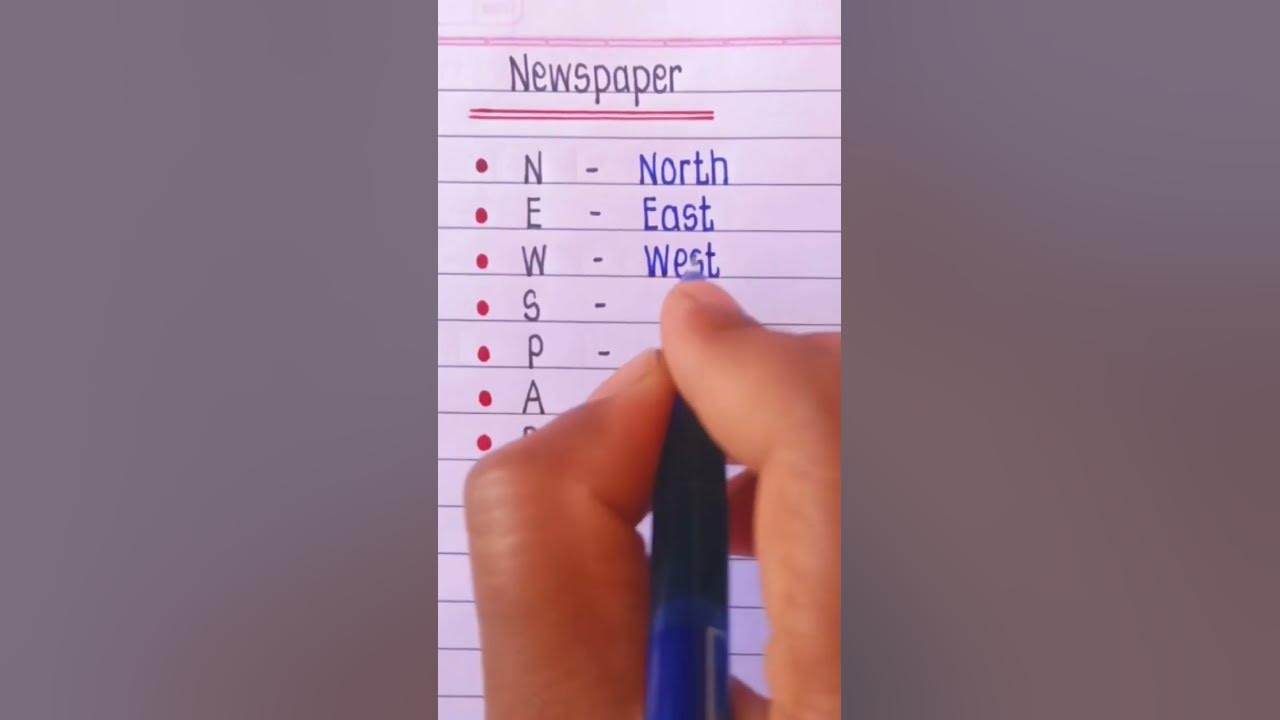 Newspaper
• N - North
• E - East
• W - West
• S -
• P -
• A
•